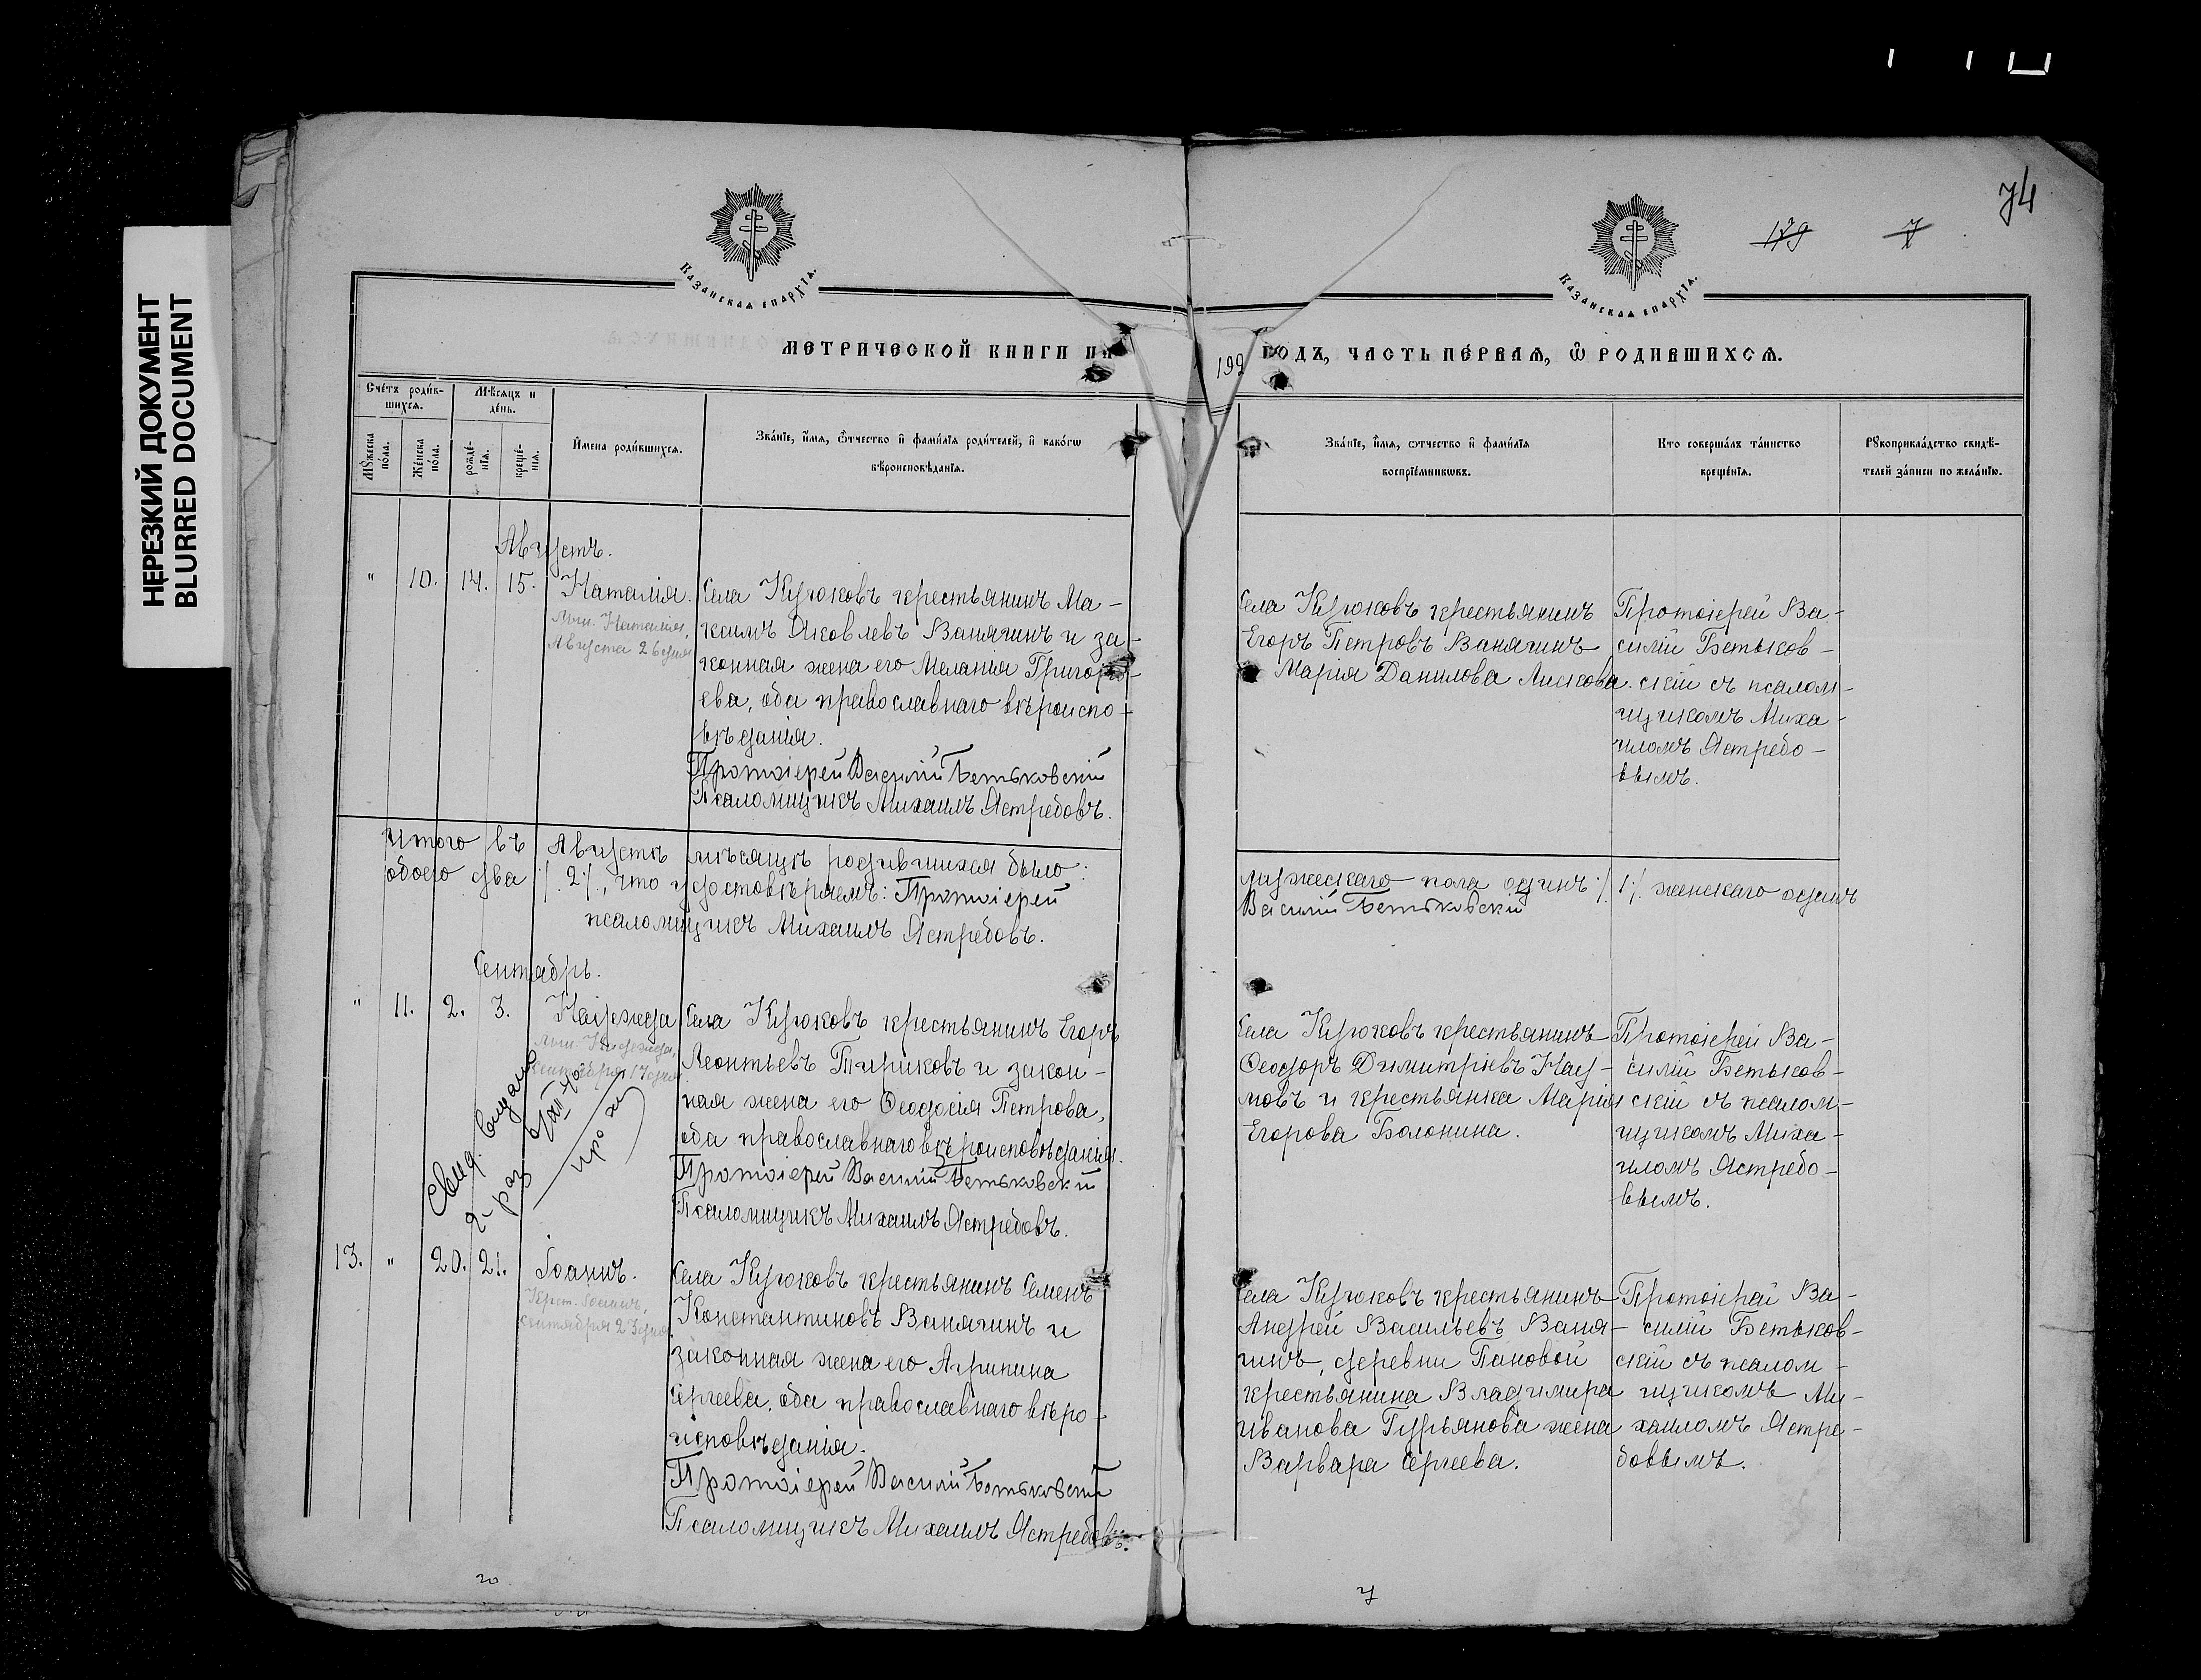 НЕРЕЗКИЙ ДОКУМЕНТ
BLURRED DOCUMENT
74
179
7
Казанская епархїя.
Казанская епархїя.
Метрической книги на
199
годъ, часть первая, ѿ родившихся.
Счетъ родив-
шихся.
Мѣсяцъ и
день.
Мужеска
пола.
Женска
пола.
рожде-
нїя.
креще-
нїя.
Имена родившихся.
Званїе, имя, ѿтчество и фамилїя родителей, и какогѡ
вѣроисповѣданїя.
Званїе, имя, ѻтчество и фамилїя
воспрїемникѡвъ.
Кто совершалъ таинство
крещенїя.
Рукоприкладство свидѣ-
телей записи по желанїю.
Августъ.
" 10. 14. 15. Наталія.
Мьн. Наталіи,
Августа 26 дня
Села Кугюковъ крестьянинъ Ма-
ксимъ Яковлевъ Ванягинъ и за-
конная жена его Меланія Григорь-
ева, оба православнаго вѣроиспо-
вѣданія.
Протоіерей Василій Бетьковскій
Псаломщикъ Михаилъ Ястребовъ.
Села Кугюковъ крестьянинъ
Егоръ Петровъ Ванягинъ
Марія Данилова Лискова.
Протоіерей Ва-
силій Бетьков-
скій съ псалом-
щикомъ Миха-
иломъ Ястребо-
вымъ.
Итого въ Августѣ мѣсяцѣ родившихся было:
мужескаго пола одинъ /.1./. женскаго один
обоего два /.2/., что удостовѣряемъ: Протоіерей
Василій Бетьковскій
псаломщикъ Михаилъ Ястребовъ.
Сентябрь.
" 11. 2. 3. Надежда
Мьн. Надежда,
сентября 17 дня
Свид. выдано
2- раз
Села Кугюковъ крестьянинъ Егоръ
Леонтьевъ Тириковъ и закон-
ная жена его Ѳеодосія Петрова,
оба православнаго вѣроисповѣданія.
Протоіерей Василій Бетьковскій
Псаломщикъ Михаилъ Ястребовъ.
Села Кугюковъ крестьянинъ
Ѳеодоръ Димитріевъ Нау-
мовъ и крестьянка Марія
Егорова Болонина.
Протоіерей Ва-
силій Бетьков-
скій съ псалом-
щикомъ Миха-
иломъ Ястребо-
вымъ.
13. " 20. 21. Іоаннъ.
Крест. Іоаннъ,
сентября 23 дня
Села Кугюковъ крестьянинъ Семенъ
Константиновъ Ванягинъ и
законная жена его Агрипина
Сергеева, оба православнаго вѣро-
исповѣданія.
Протоіерей Василій Бетьковскій
Псаломщикъ Михаилъ Ястребовъ.
Села Кугюковъ крестьянинъ
Андрей Васильевъ Ваня-
гинъ, деревни Пановой
крестьянина Владимира
Иванова Гурьянова жена
Варвара Сергеева.
Протоіерей Ва-
силій Бетьков-
скій съ псалом-
щикомъ Ми-
хаиломъ Ястре-
бовымъ.
20
7